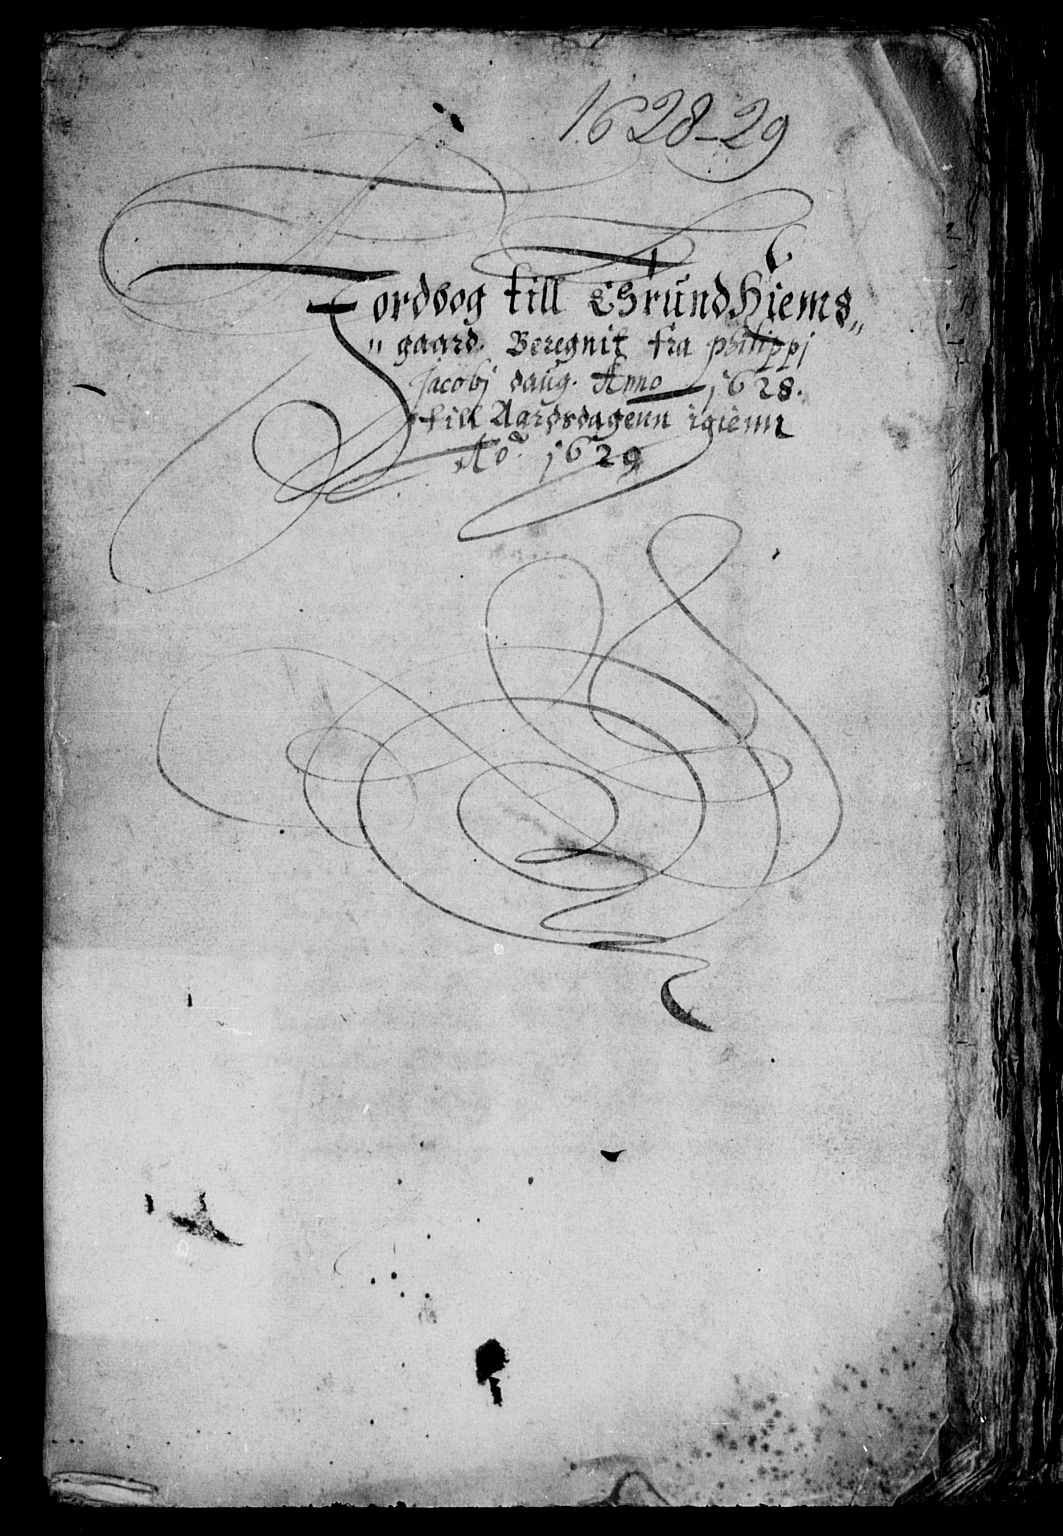 1628-29
Jordbog till Thrundhiems„
„ gaard. Beregnit fra philippj
Jacobj daug. Anno 1628.
till Aarsdagenn igienn
Ao. 1629